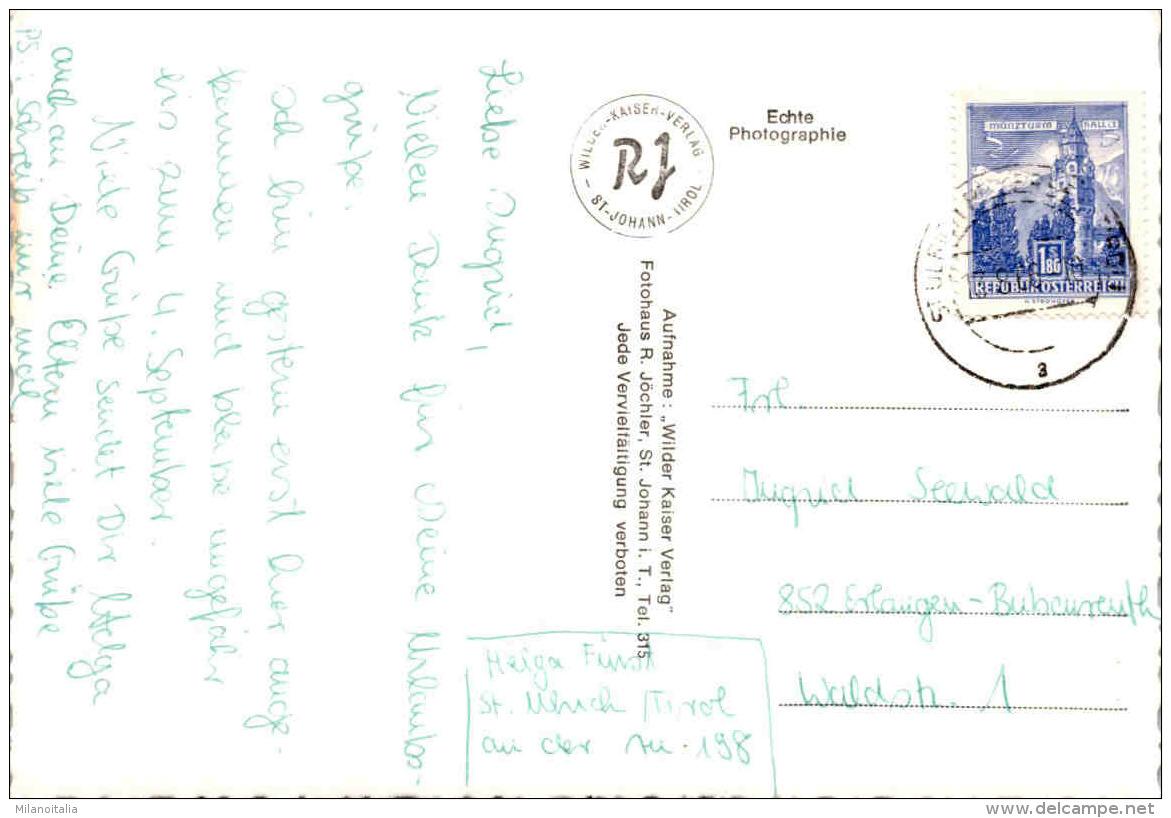 Liebe Ingrid,
Vielen Dank für Deine Urlaubs-
grüße.
Ich bin gestern erst hier ange-
kommen und bleibe ungefähr
bis zum 4. September.
Viele Grüße sendet Dir Helga
auch an Deine Eltern viele Grüße
PS.: Schreib mir mal
WILDER-KAISER-VERLAG
RJ
ST-JOHANN-TIROL
Echte
Photographie
Aufnahme: „Wilder Kaiser Verlag"
Fotohaus R. Jöchler, St. Johann i. T., Tel. 315
Jede Vervielfältigung verboten
MÜNZTURM HALL i
1.80
S
REPUBLIK ÖSTERREICH
ST.UL
a
Frl.
Ingrid Seewald
852 Erlangen-Bubenreuth
Waldstr. 1
Helga Fürst
St. Ulrich/Tirol
an der Au 198
Milanoitalia